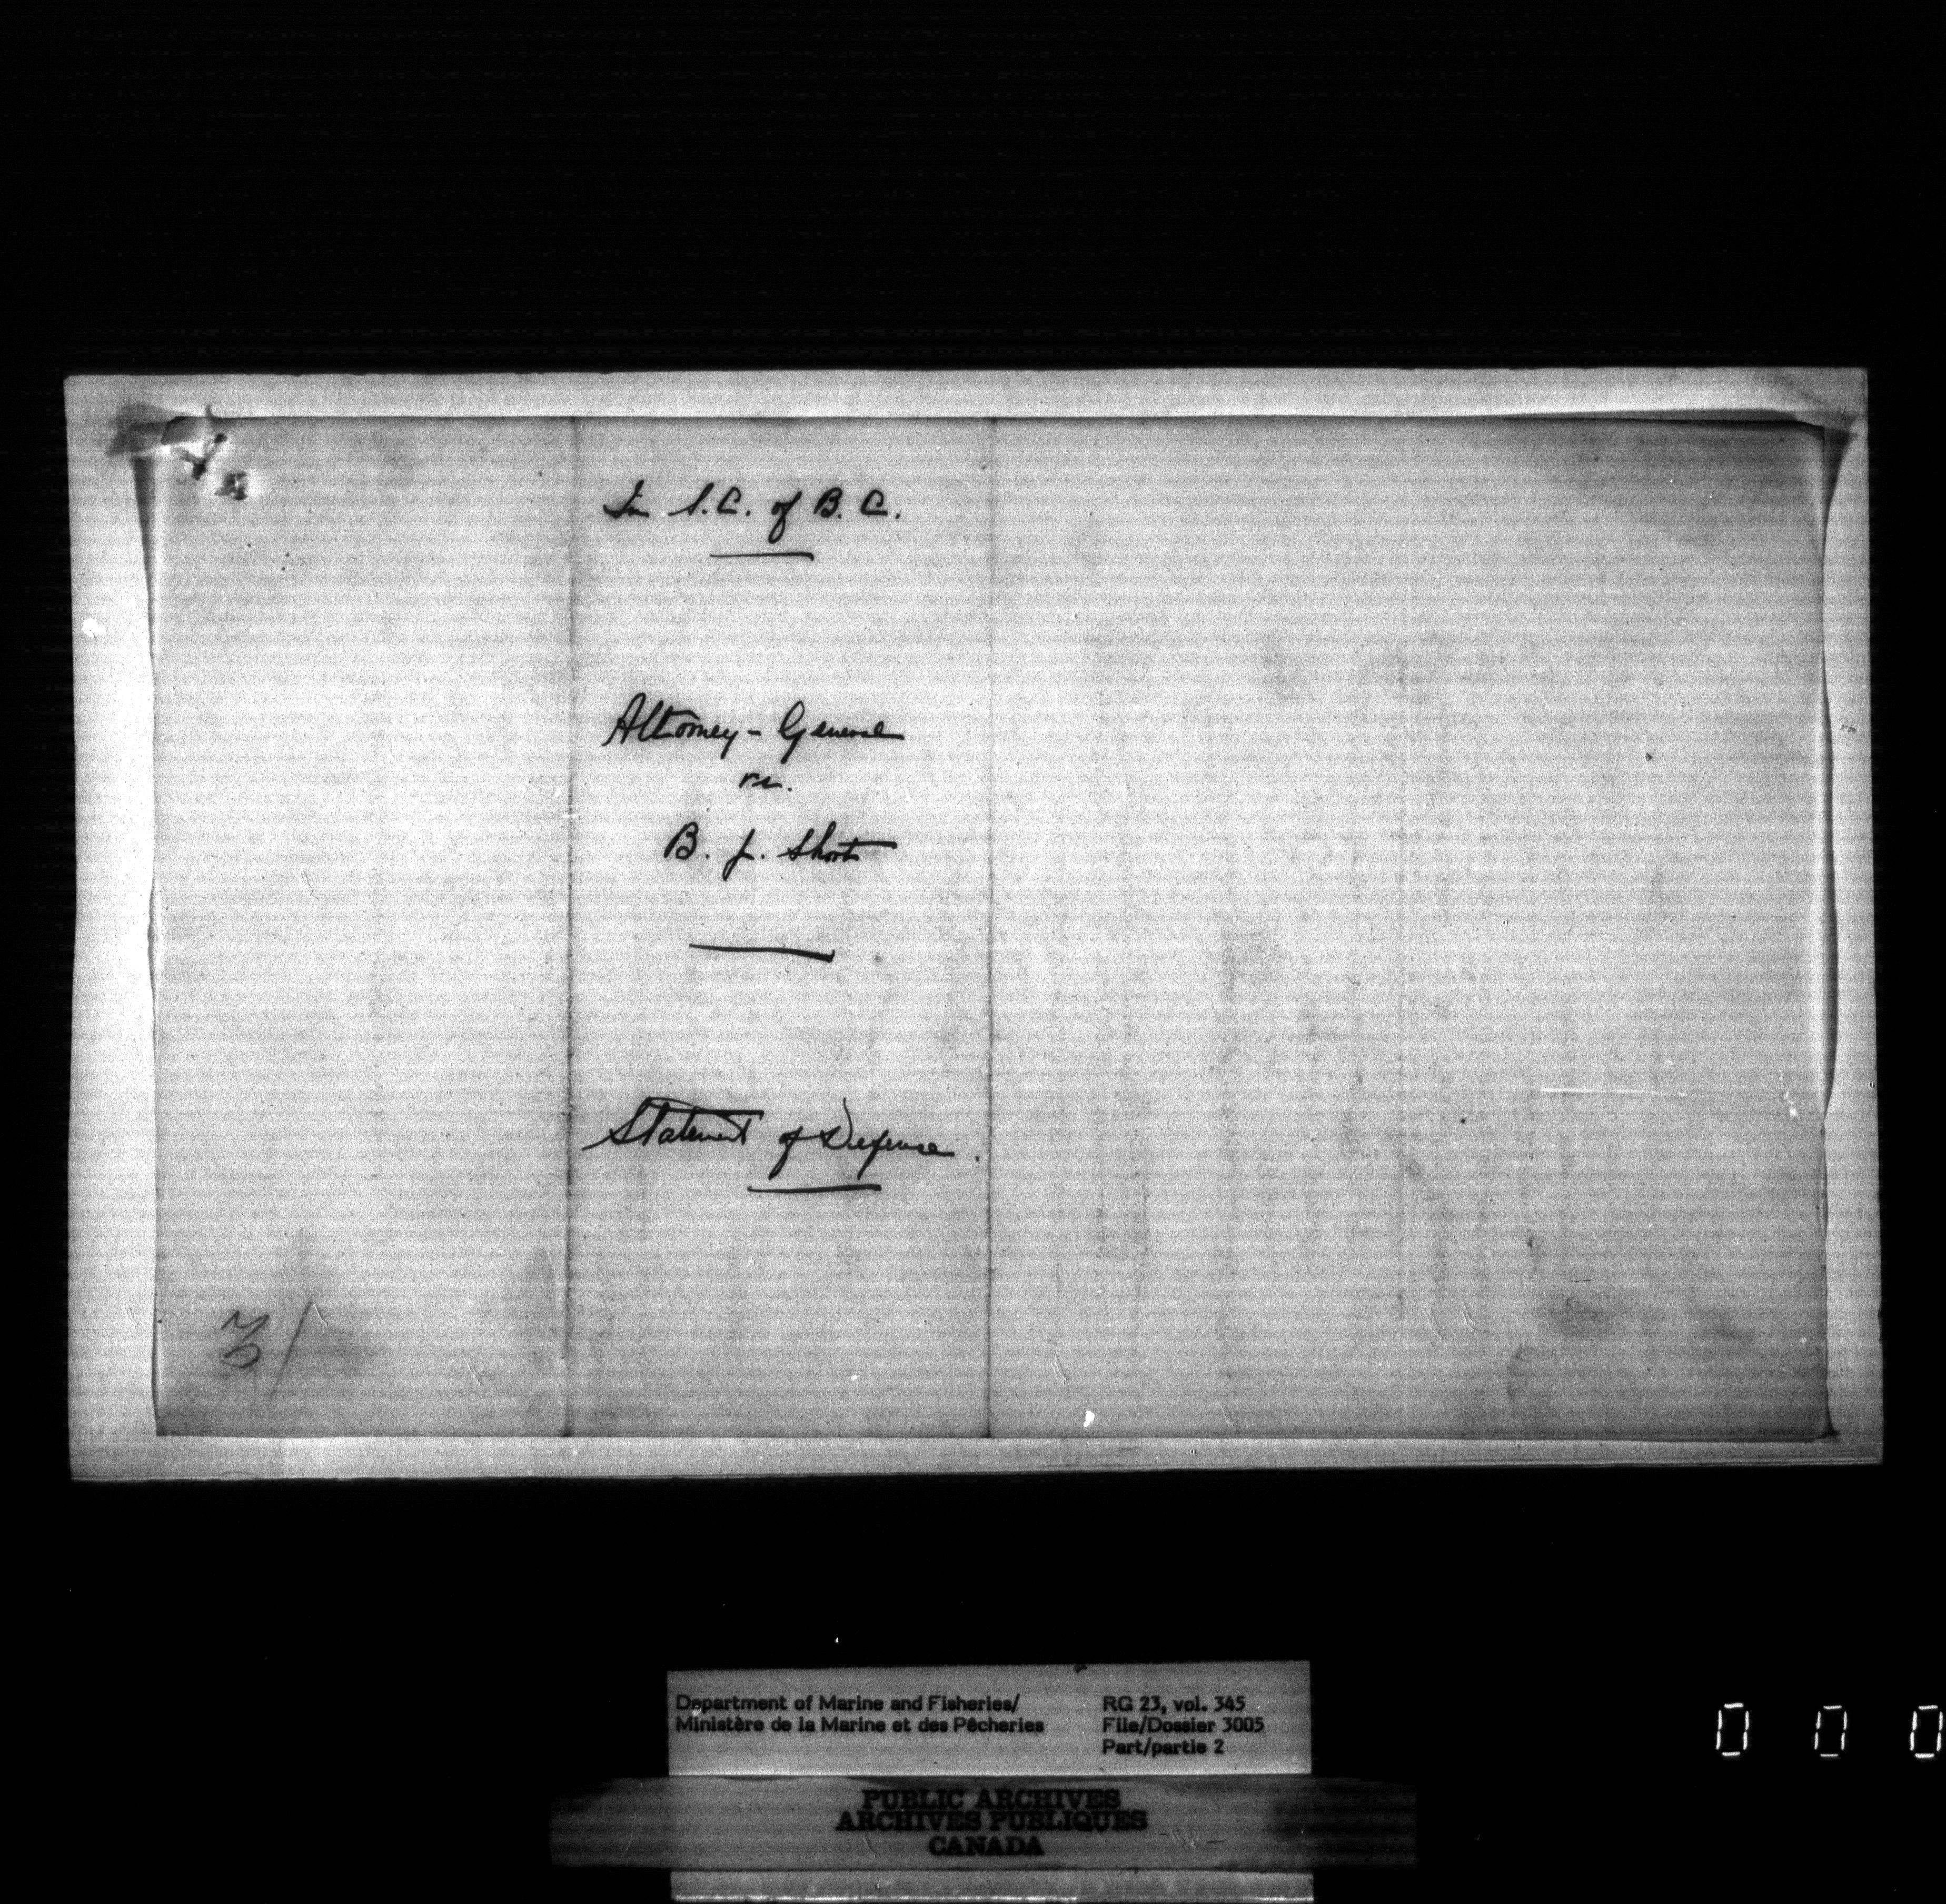 In S.C. of B.C.
Attorney-General
vs.
B. J. Short
Statement of Defence.
3/
Department of Marine and Fisheries/
Ministère de la Marine et des Pêcheries
RG 23, vol. 345
File/Dossier 3005
Part/partie 2
PUBLIC ARCHIVES
ARCHIVES PUBLIQUES
CANADA
0 0 0